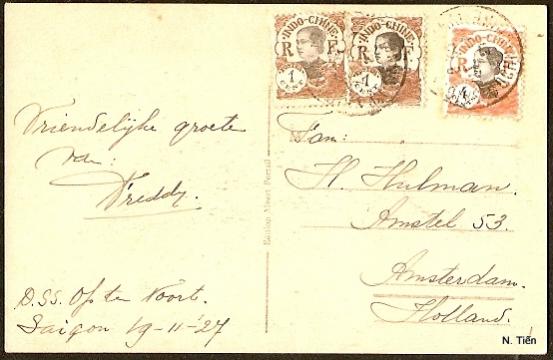 INDO-CHINE
R F
1
CENT
INDO-CHINE
R F
1
CENT
INDO-CHINE
R
4
Vriendelijke groete
van:
Freddy.
D.S.S. Op ten Noort.
Saigon 19-11-'27
Aan:
H. Hulman.
Amstel 53.
Amsterdam.
Holland.
N. Tiến